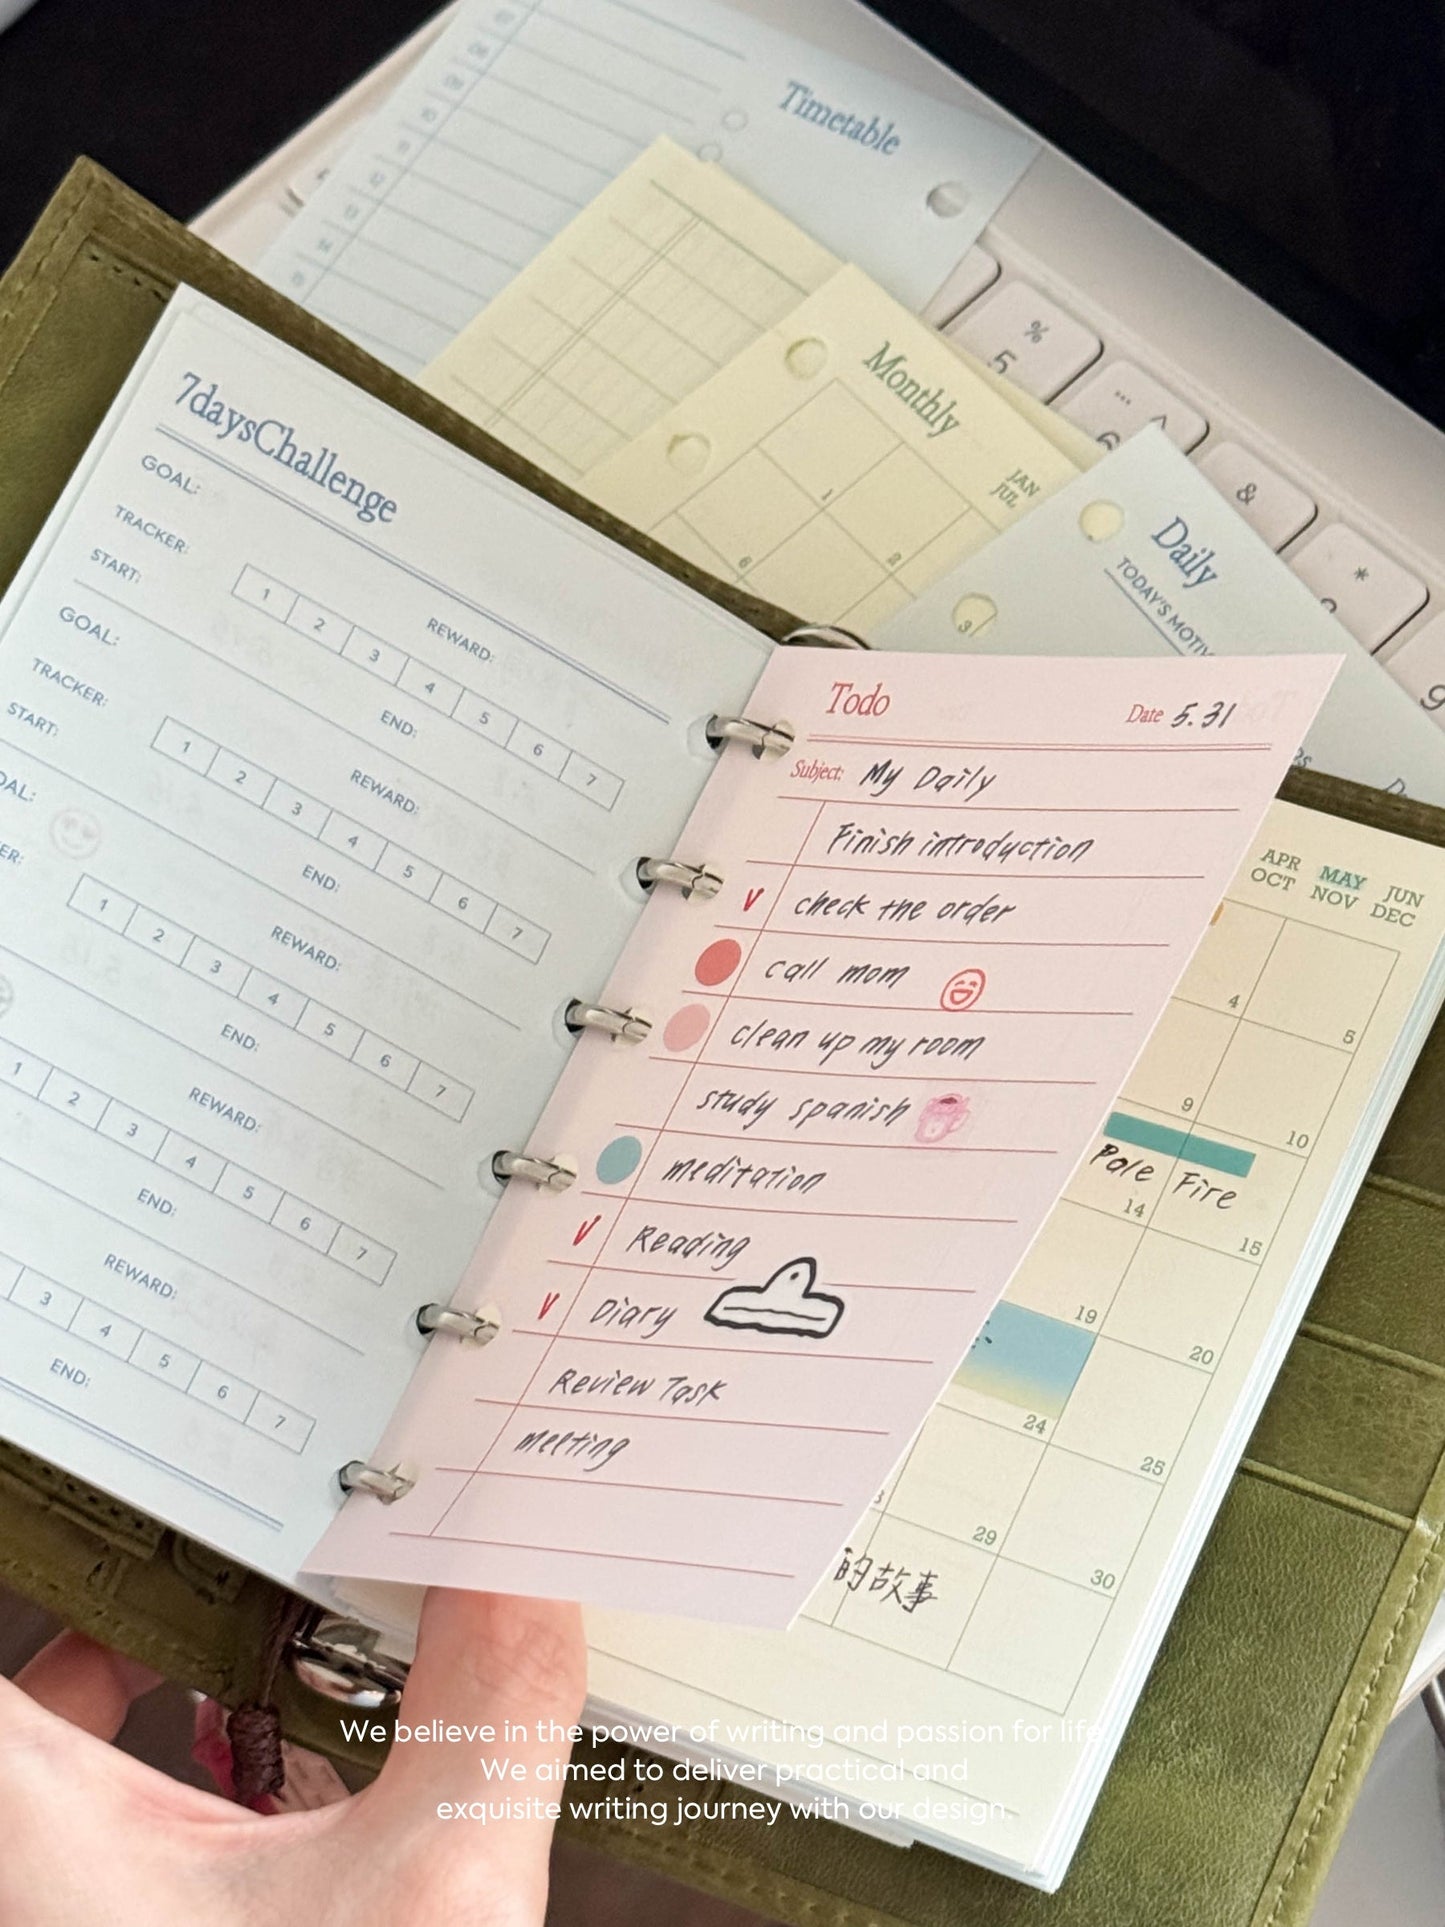 Timetable
%
5
6
&
*
9
Monthly
JAN
JUL
1
2
6
Daily
TODAY'S MOTIV
3
7daysChallenge
GOAL:
TRACKER:
1 2 3 4 5 6 7
START:
REWARD:
END:
GOAL:
TRACKER:
1 2 3 4 5 6 7
START:
REWARD:
END:
OAL:
ER:
1 2 3 4 5 6 7
REWARD:
END:
1 2 3 4 5 6 7
REWARD:
END:
3 4 5 6 7
REWARD:
END:
Todo
Date 5.31
Subject: My Daily
Finish introduction
✓ check the order
call mom
clean up my room
study spanish
meditation
✓ Reading
✓ Diary
Review Task
meeting
APR MAY JUN
OCT NOV DEC
4 5
9 10
Pale Fire
14 15
19 20
24 25
29 30
的故事
We believe in the power of writing and passion for life.
We aimed to deliver practical and
exquisite writing journey with our design.